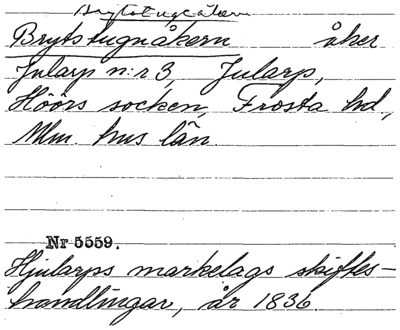 Brytstugeåkern
Brytstugnåkern åker
Jularp n:r 3, Jularp,
Höörs socken, Frosta hd,
Mlm. hus län.
Nr 5559.
Hjularps markelags skiftes-
handlingar, år 1836.